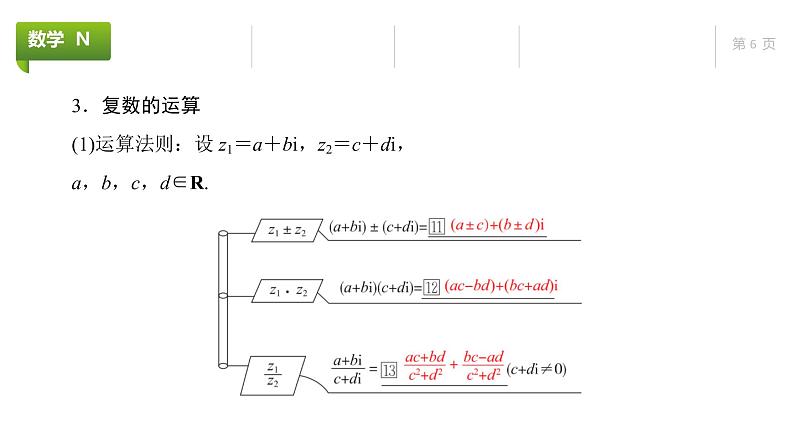 数学 N
第 6 页
3．复数的运算
(1)运算法则：设 z₁＝a＋bi，z₂＝c＋di，
a，b，c，d∈R.
z₁ ± z₂ (a+bi) ± (c+di)=11 (a±c)+(b±d)i
z₁・z₂ (a+bi)(c+di)=12 (ac−bd)+(bc+ad)i
z₁/z₂ (a+bi)/(c+di) = 13 (ac+bd)/(c²+d²) + (bc−ad)/(c²+d²) (c+di≠0)